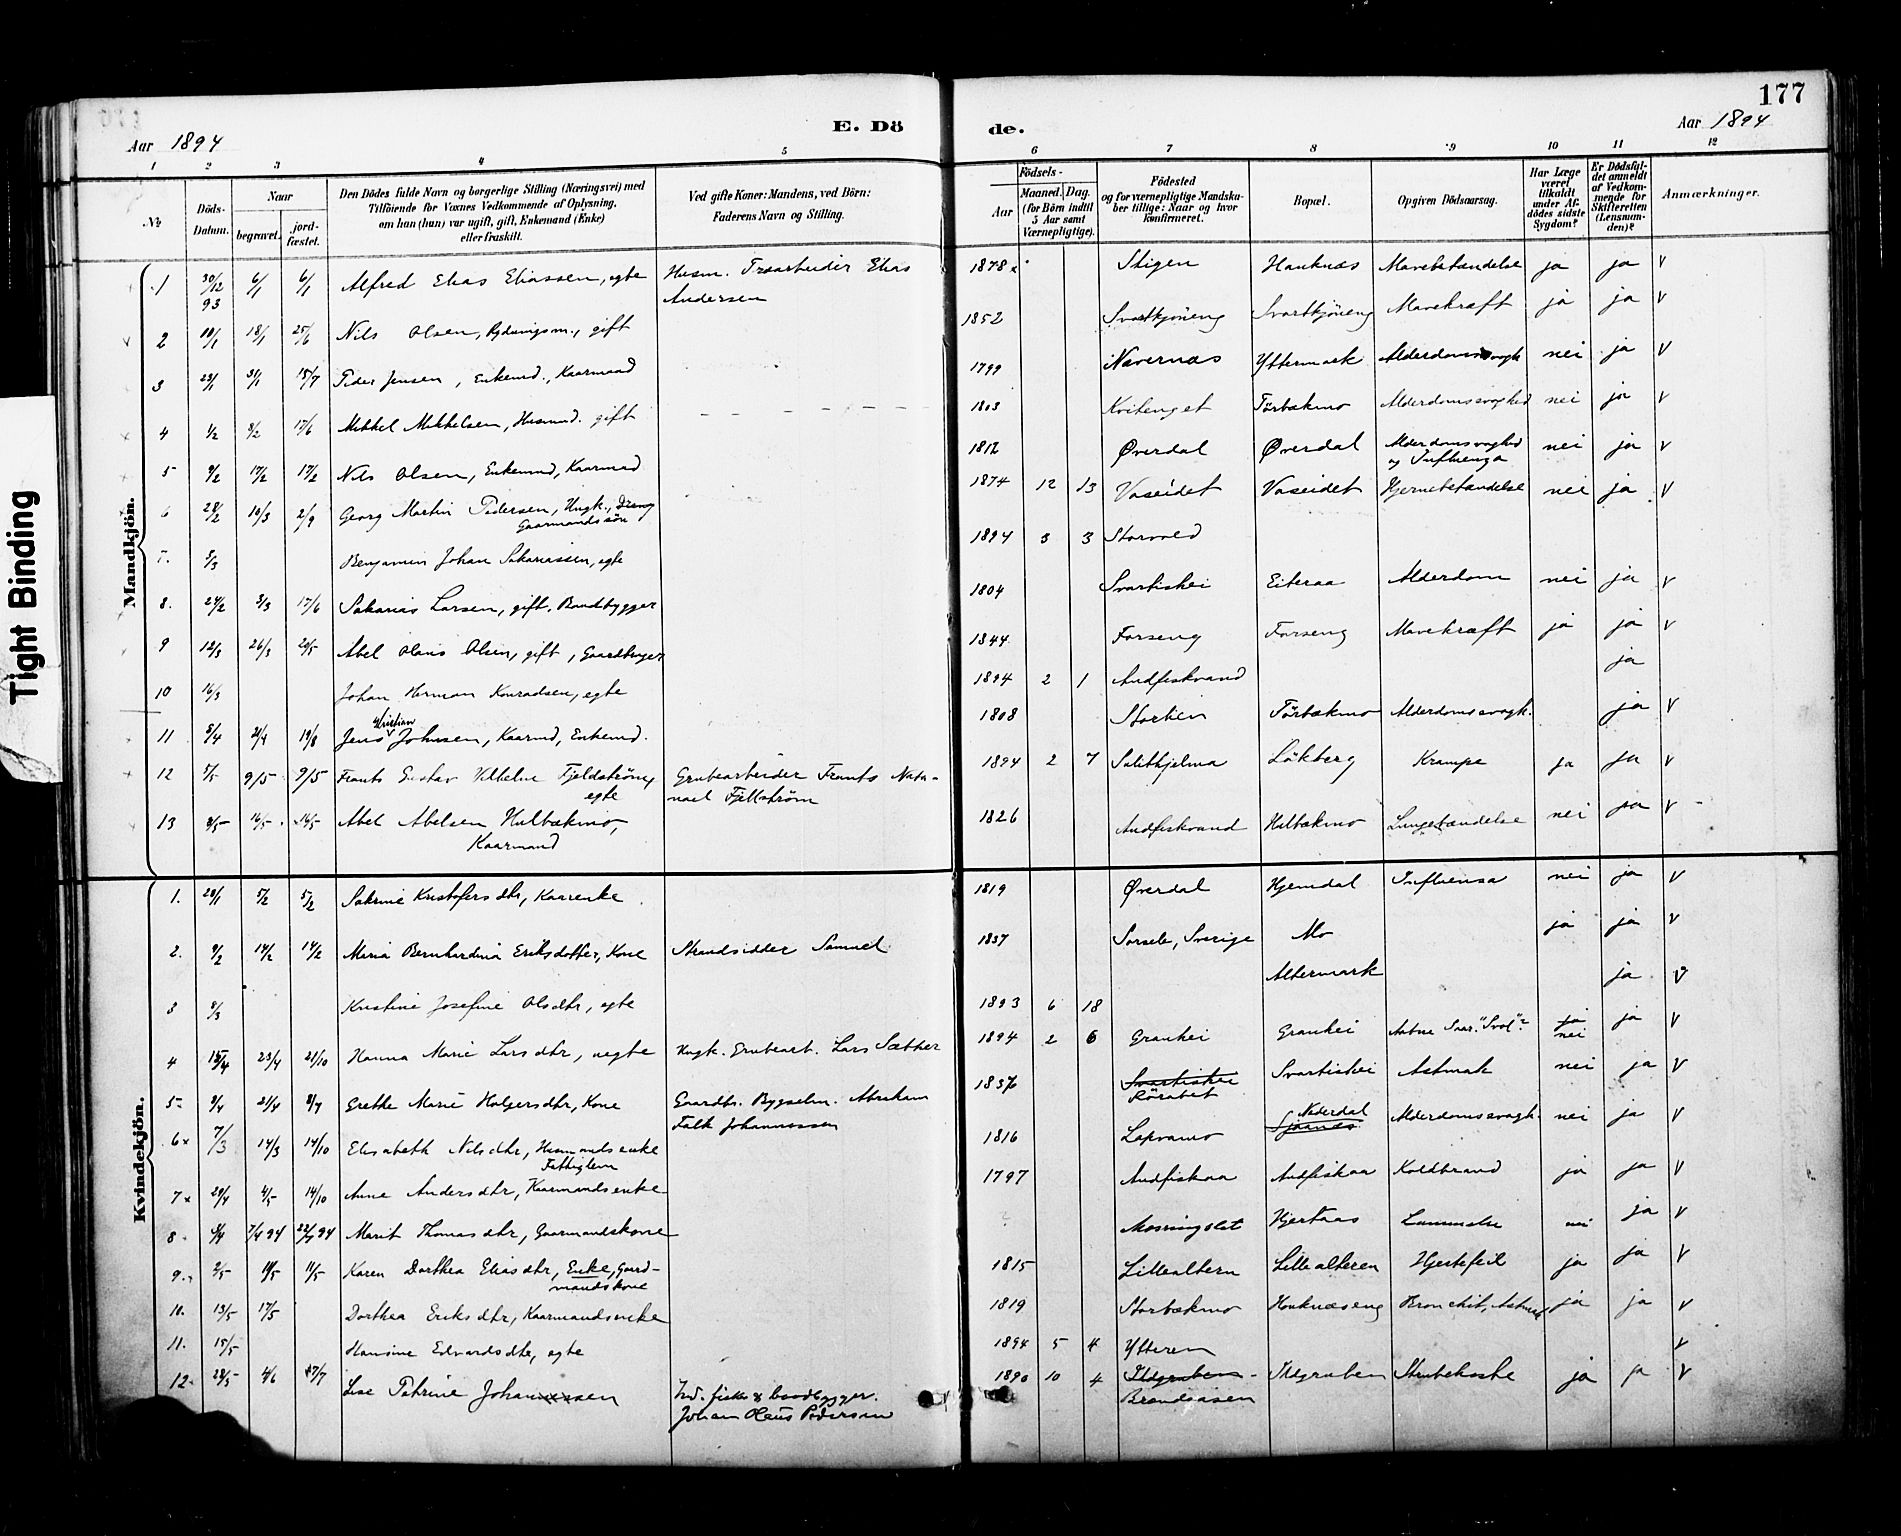 177
E. Döde.
Aar 1894
Aar 1894
1 2 3 4 5 6 7 8 9 10 11 12
No
Döds-Datum.
Naar
begravet.
jordfæstet.
Den Dödes fulde Navn og borgerlige Stilling (Næringsvei) med
Tilföiende for Voxnes Vedkommende af Oplysning,
om han (hun) var ugift, gift, Enkemand (Enke)
eller fraskilt.
Ved gifte Koner: Mandens, ved Börn:
Faderens Navn og Stilling.
Födsels-
Aar
Maaned. Dag.
(for Börn indtil
5 Aar samt
Værnepligtige).
Födested
og for værnepligtige Mandsku-
ber tillige: Naar og hvor
konfirmeret.
Bopæl.
Opgiven Dödsaarsag.
Har Læge
været
tilkaldt
under Af-
dödes sidste
Sygdom?
Er Dödsfal-
det anmeldt
af Vedkom-
mende for
Skifteretten
(Lensman-
den)?
Anmærkninger.
Tight Binding
Mandkjön.
1 30/12 93 6/1 6/1 Alfred Elias Eliassen, egte Husm. Træarbeider Elias Andersen 1878 Stigen Hauknæs Mavebetændelse ja ja V
2 10/1 18/1 25/6 Nils Olsen, Rydningsm., gift 1852 Svartkjöneng Svartkjöneng Mavekræft ja ja V
3 23/1 31/1 15/7 Peder Jensen, Enkemd., Kaarmand 1799 Nævernæs Yttermark Alderdomssvagh nei ja V
4 1/2 8/2 17/6 Mikkel Mikkelsen, Husmd. gift 1803 Kvitenget Törbækmo Alderdomssvaghed nei ja V
5 9/2 17/2 17/2 Nils Olsen, Enkemd, Kaarmand 1812 Øverdal Øverdal Alderdomssvaghed og Influenza nei ja V
6 28/2 10/3 2/9 Georg Martin Pedersen, Ungk., Dreng Gaarmandssøn 1874 12 13 Vaseidet Vaseidet Hjernebetændelse nei ja V
7. 5/3 Benjamin Johan Sakariassen, egte 1894 3 3 Storvold
8. 24/2 3/3 17/6 Sakarias Larsen, gift, Baadbygger 1804 Svartishei Eiteraa Alderdom nei ja V
9 12/3 26/3 20/5 Abel Olaus Olsen, gift, Gaardbruger 1844 Forseng Forseng Mavekræft ja ja V
10 16/3 Johan Herman Konradsen, egte 1894 2 1 Andfiskvand ja
11 8/4 21/4 19/8 Jens Kristian Johnsen, Kaarmd, Enkemd. 1808 Storlien Törbækmo Alderdomssvagh. ja V
12 5/5 9/5 9/5 Frants Gustav Vilhelm Fjeldstrøm, egte Grubearbeider Frants Natanael Fjellstrøm 1894 2 7 Sulitkjelma Lökberg Krampe ja ja V
13 8/5 16/5 16/5 Abel Abelsen Hulbækmo, Kaarmand 1826 Andfiskvand Hulbækmo Lungebetændelse nei ja V
Kvindekjön.
1. 28/1 5/2 5/2 Sakrine Kristofersdtr, Kaarenke 1819 Øverdal Hjemdal Influensa nei ja V
2. 9/2 14/2 14/2 Maria Bernhardina Eriksdotter, Kone Strandsidder Samuel 1837 Sorsele, Sverige Mo ja ja V
3 8/3 Kristine Josefine Olsdtr, egte 1893 6 18 Altermark ja V
4 15/4 23/4 21/10 Hanna Marie Larsdtr, uegte Ungk. Grubearb. Lars Sæther 1894 2 6 Granhei Granhei Aabne Saar. "Svol"? ja nei ja V
5 9/4 21/4 8/7 Grethe Marie Holgersdtr, Kone Gaardbr. Bygselm. Abraham Falk Johannessen 1836 Svartishei Rörabet Svartishei Astmak nei ja V
6 7/3 14/3 14/10 Elisabeth Nilsdtr, Husmandsenke Fattiglem 1816 Lapvamo Sjaanæs Nederdal Alderdomssvagh. nei ja V
7 29/4 4/5 14/10 Anne Andersdtr, Kaarmandsenke 1797 Andfiskaa Andfiskaa Koldbrand ja ja V
8 4/4 7/4 94 22/7 94 Marit Thomasdtr, Gaarmandskone Mosringslet Hjertaas Lammelse nei ja V
9. 2/5 11/5 11/5 Karen Dorthea Eliasdtr, Enke, Gaardmandskone 1815 Lillealtern Lillealteren Hjertefeil ja ja V
10. 13/5 17/5 Dorthea Eriksdtr, Kaarmandsenke 1819 Storbækmo Hauknæseng Bronchit, Astma ja ja V
11. 15/5 Hansine Edvardsdtr, egte 1894 5 4 Ytteren V
12 28/5 4/6 17/7 Lise Petrine Johansen Ind. fisker & baadbygger. Johan Olaus Pedersen 1890 10 4 Ildgruben Brændaasen Ildgruben Strubehoste ja ja V